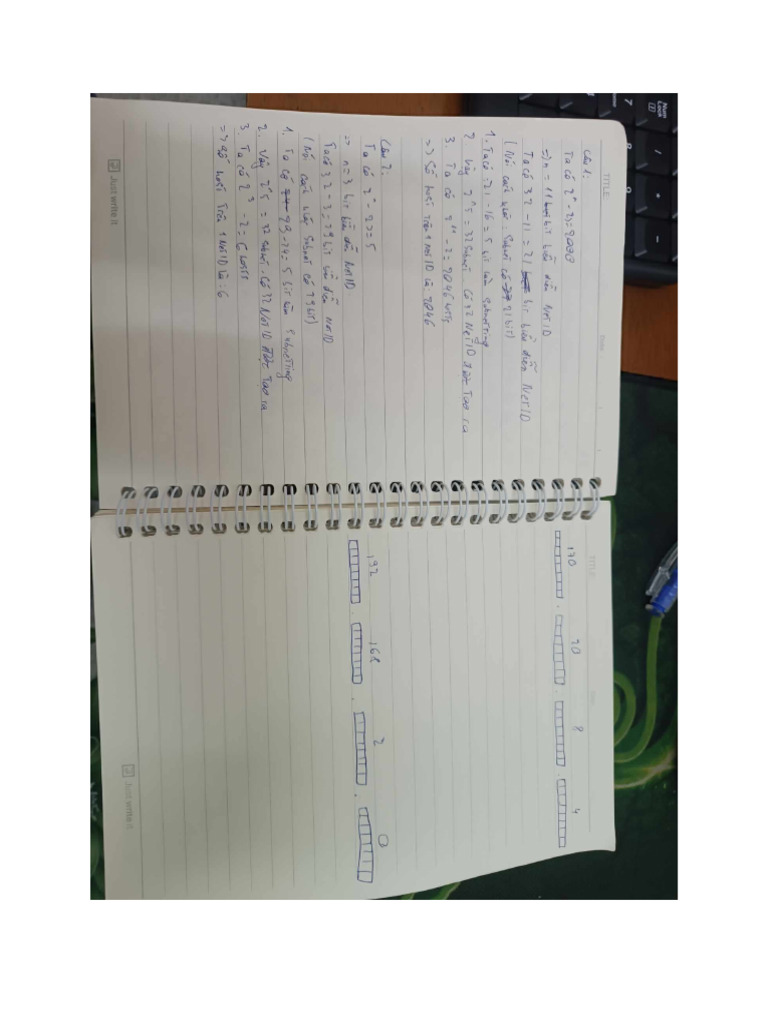 TITLE
Câu 1:
Ta có 2^n - 2 >= 2000
=> n = 11 bit biểu diễn NetID
Ta có 32 - 11 = 21 bit biểu diễn NetID
(Nói cách khác: Subnet có 21 bit)
1. Ta có: 21 - 16 = 5 bit làm subnetting
2. Vậy 2^5 = 32 subnet. Có 32 NetID được tạo ra
3. Ta có 2^11 - 2 = 2046 hosts
=> Số host trên 1 NetID là: 2046
Câu 2:
Ta có 2^n - 2 >= 5
=> n = 3 bit biểu diễn NetID
Ta có 32 - 3 = 29 bit biểu diễn NetID
(Nói cách khác Subnet có 29 bit)
1. Ta có 29 - 24 = 5 bit làm subnetting
2. Vậy 2^5 = 32 subnet. Có 32 NetID được tạo ra
3. Ta có 2^3 - 2 = 6 hosts
=> Số host trên 1 NetID là: 6
Just write it
TITLE
170 . 20 . 8 . 4
192 . 168 . 2 . 0
Just write it
Num Lock
7
8
9
/
*